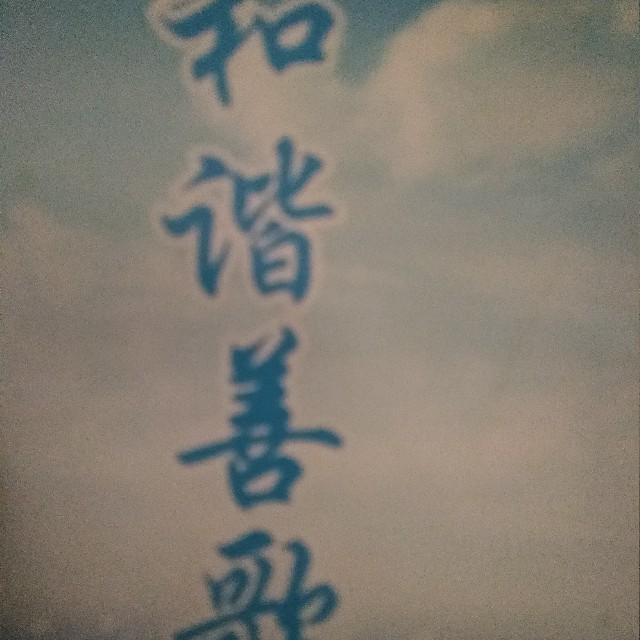 和谐善歌